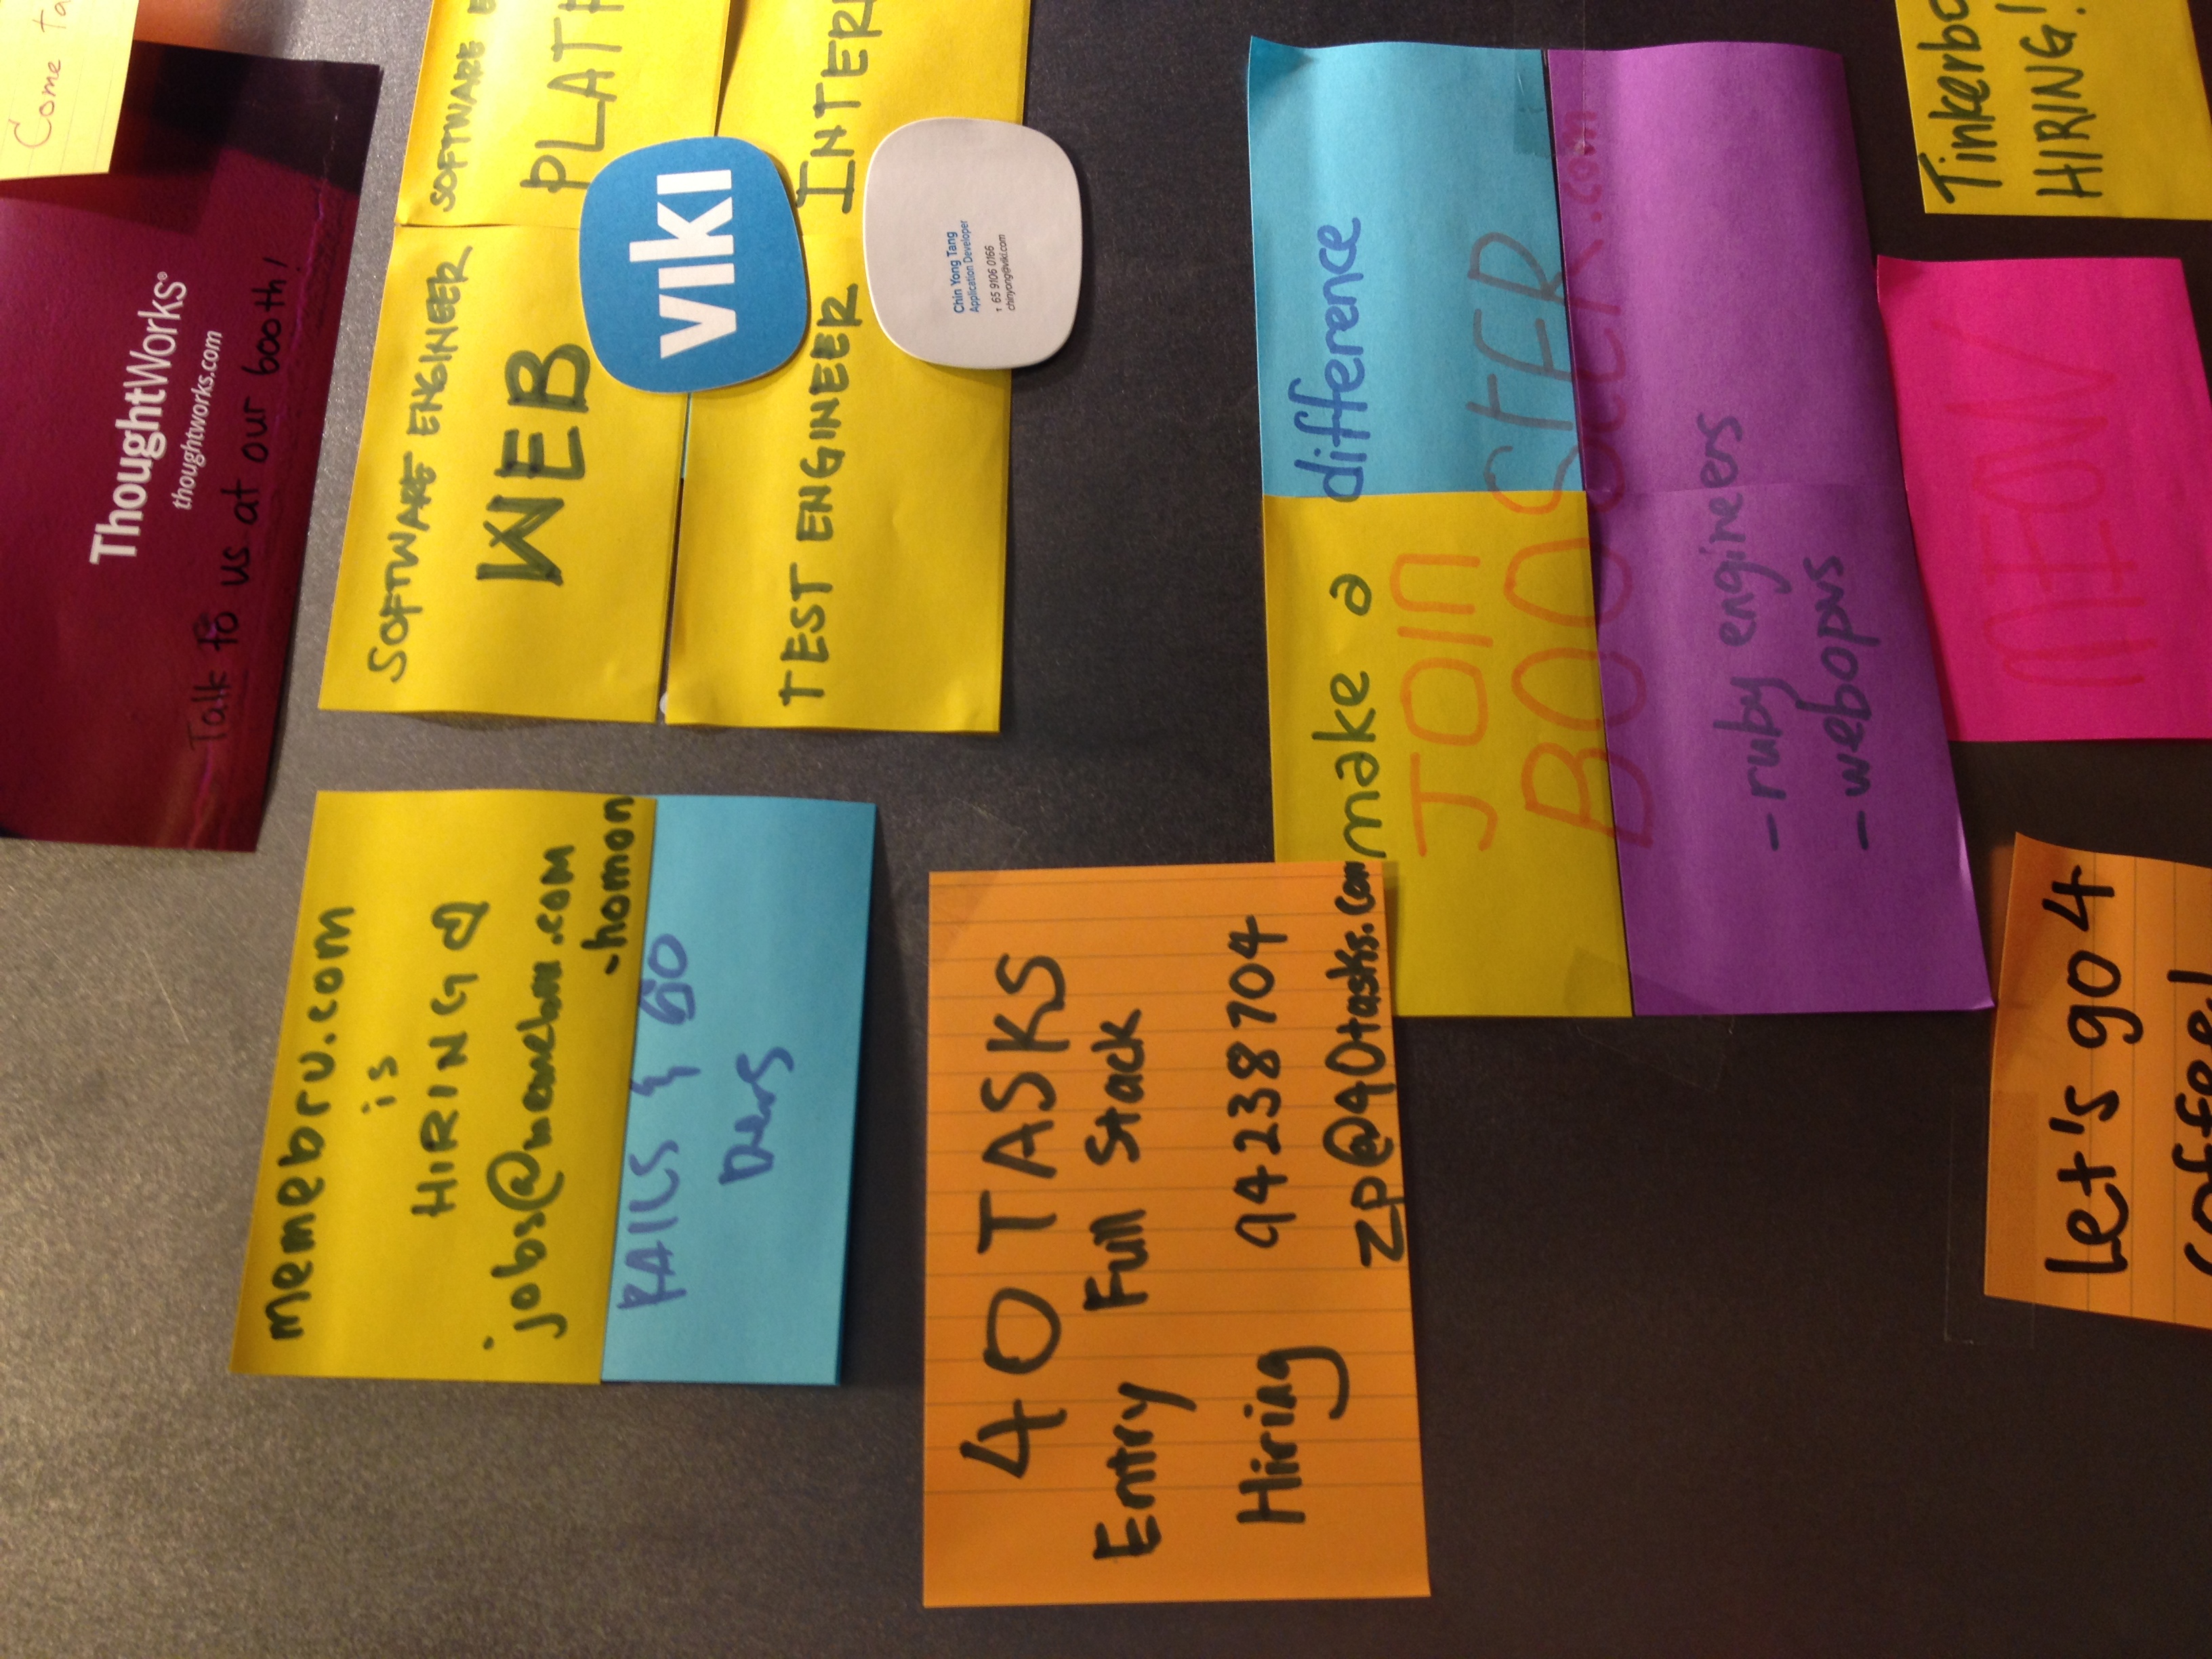 Come ta
ThoughtWorks®
thoughtworks.com
Talk to us at our booth!
memebru.com
is
HIRING
jobs@memebru.com
-homan
RAILS & GO
Devs
SOFTWARE ENGINEER
WEB
SOFTWARE E
PLATF
VIKI
TEST ENGINEER
INTER
Chin Yong Tang
Application Developer
T 65 9106 0166
chinyong@viki.com
40 TASKS
Entry Full Stack
Hiring 94238704
zp@40tasks.com
make a difference
JOIN
BOOSTER.com
-ruby engineers
-webopus
MEOW
Tinkerbo
HIRING!
Let's go 4
coffee!